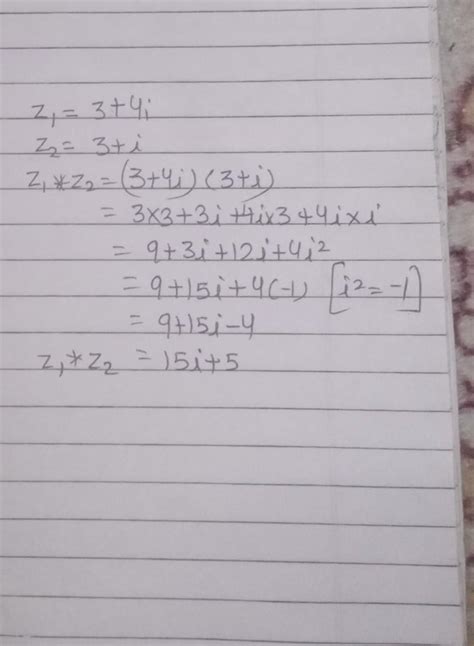 z₁ = 3+4i
z₂ = 3+i
z₁*z₂ = (3+4i) (3+i)
= 3×3+3i+4i×3+4i×i
= 9+3i+12i+4i²
= 9+15i+4(-1) [i²=-1]
= 9+15i-4
z₁*z₂ = 15i+5